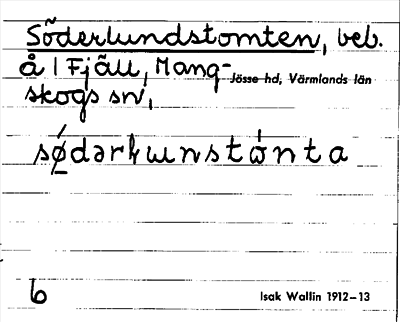 Söderlundstomten, beb.
å 1 Fjäll, Mang-
Jösse hd, Värmlands län
skogs sn,
6 Isak Wallin 1912–13